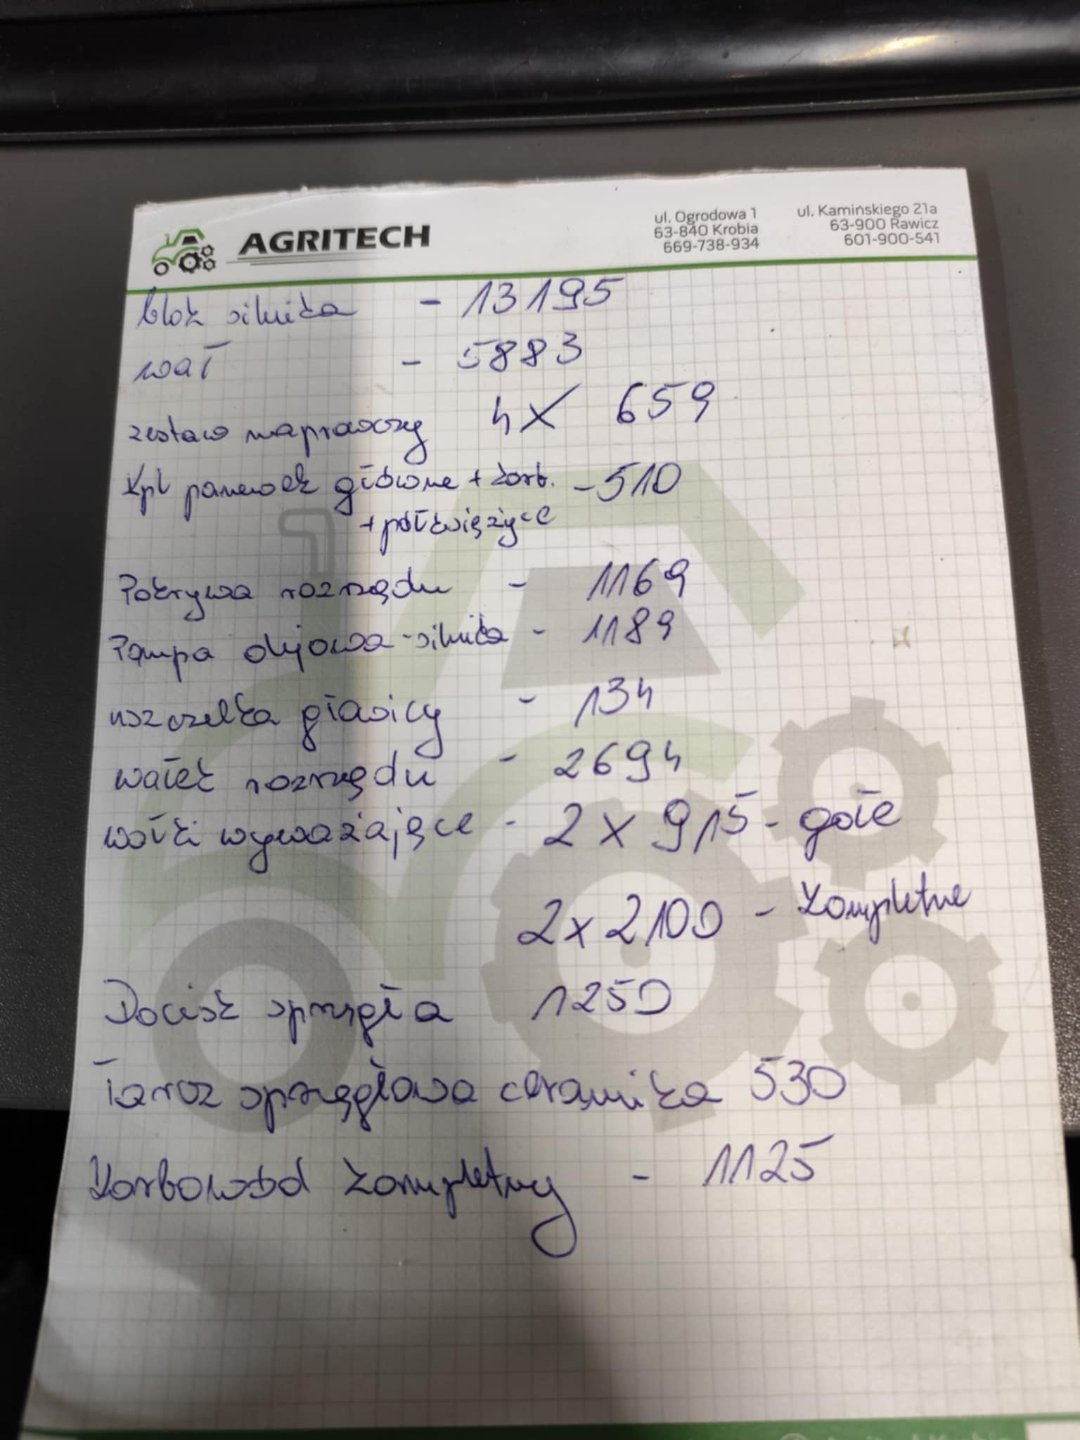 AGRITECH
ul. Ogrodowa 1
63-840 Krobia
669-738-934
ul. Kamińskiego 21a
63-900 Rawicz
601-900-541
blok silnika - 13195
wał - 5883
zestaw naprawczy 4X 659
Kpl panewek główne + korb. - 510
+ półksiężyce
Pokrywa rozrządu - 1169
Pompa olejowa - silnika - 1189
uszczelka głowicy - 134
wałek rozrządu - 2694
wałki wyważające - 2 x 915 - gołe
2 x 2100 - kompletne
Docisk sprzęgła 1250
Tarcza sprzęgłowa ceramika 530
Korbowód kompletny - 1125